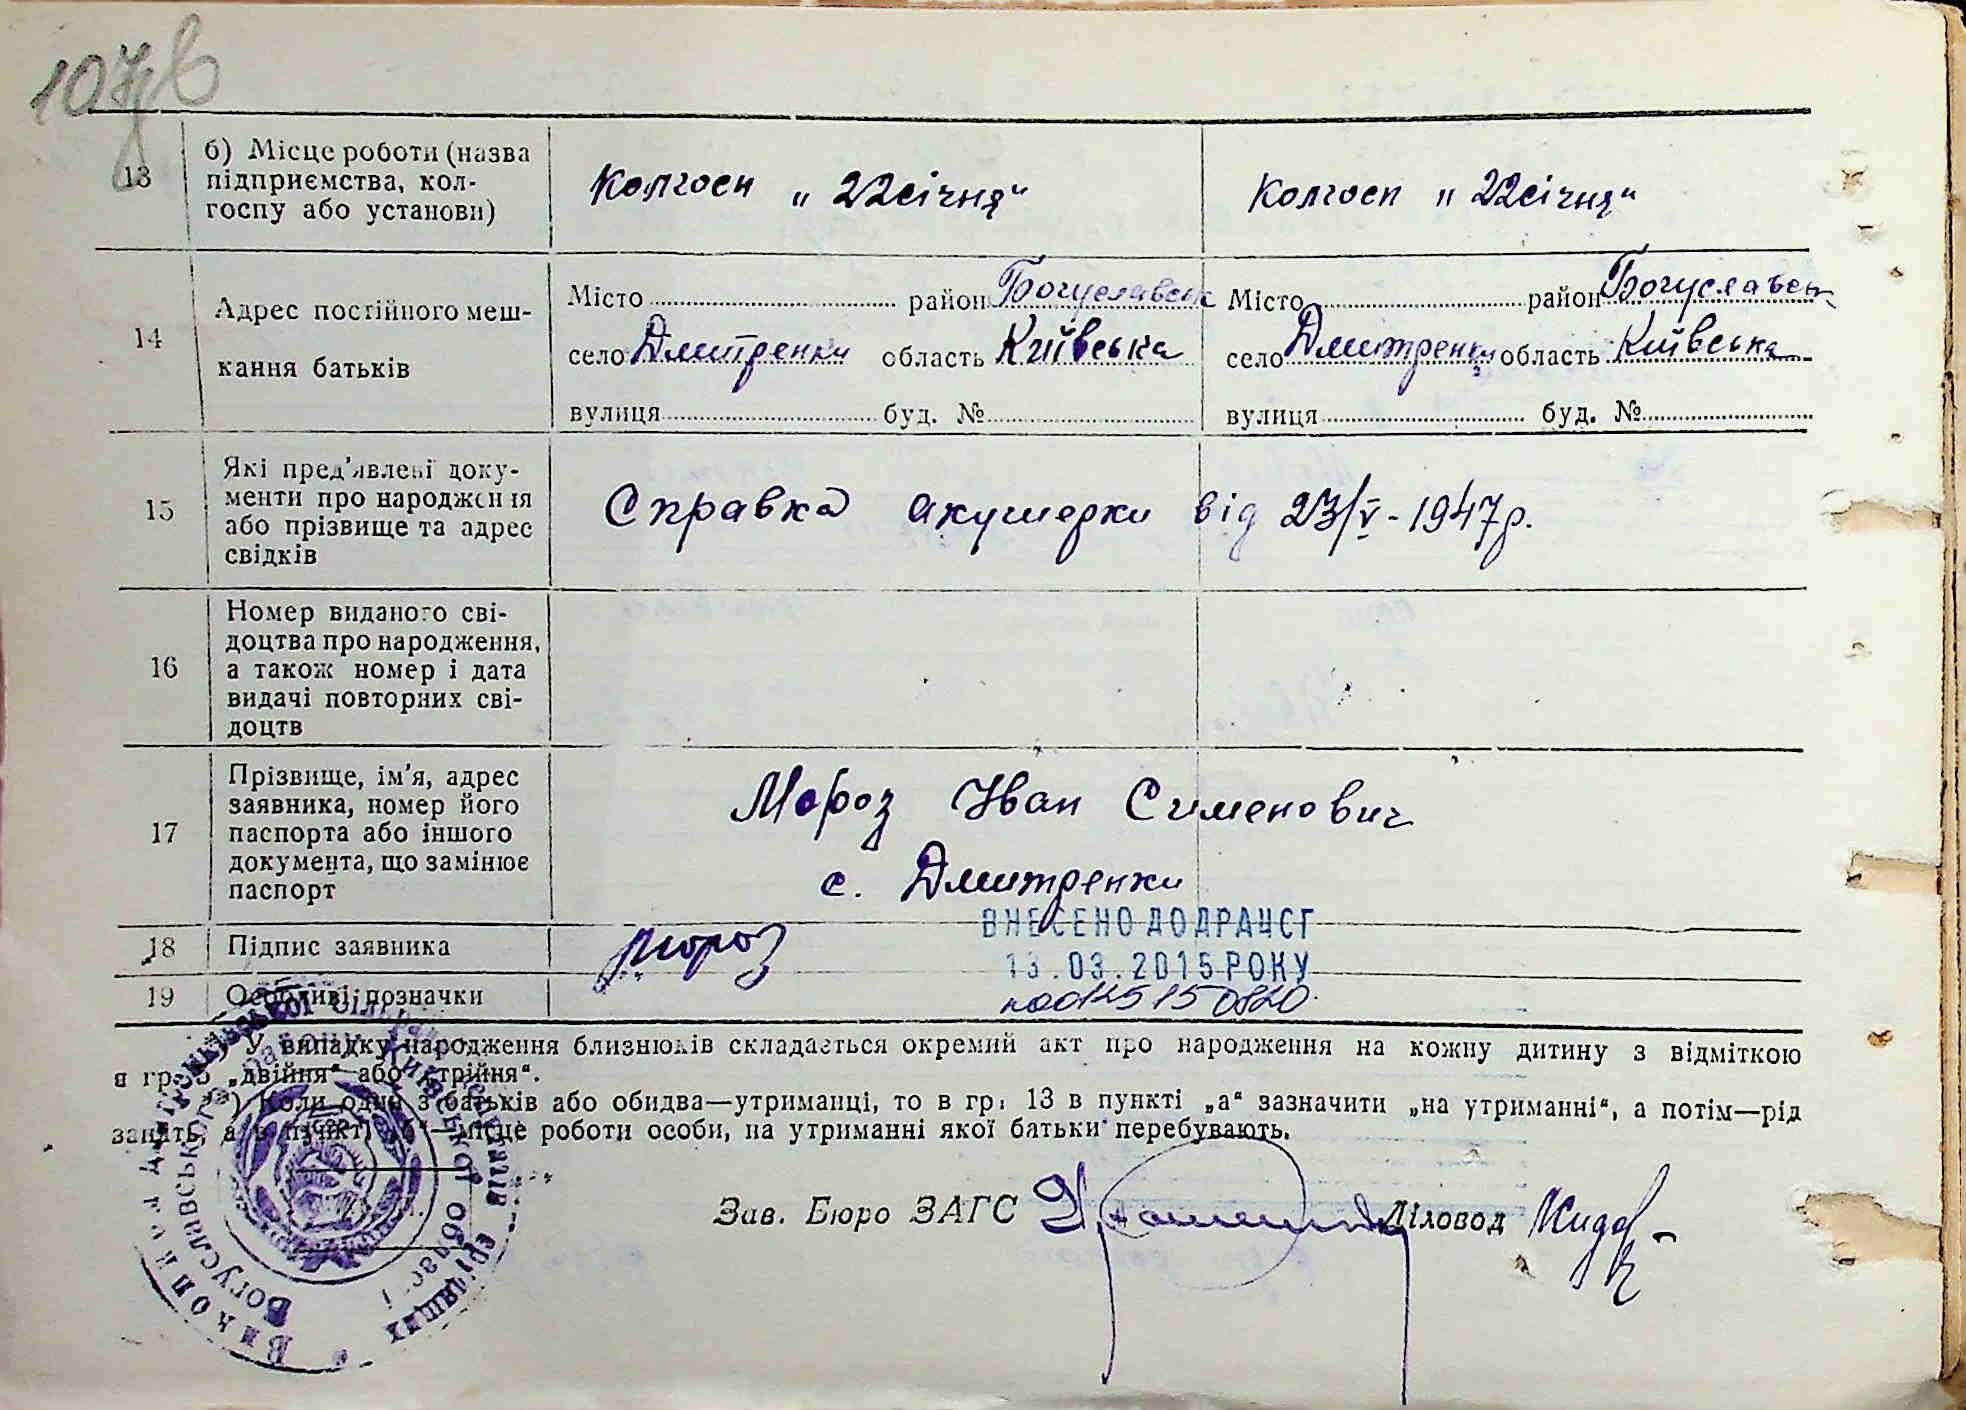 107
13
б) Місце роботи (назва
підприємства, кол-
госпу або установи)
Колгосп „22 січня“
Колгосп „22 січня“
14
Адрес постійного меш-
кання батьків
Місто район Богуславськ
село Дмитренки область Київська
вулиця буд. №
Місто район Богуславськ
село Дмитренки область Київська
вулиця буд. №
15
Які пред'явлені доку-
менти про народження
або прізвище та адрес
свідків
Справка акушерки від 23/V-1947р.
16
Номер виданого сві-
доцтва про народження,
а також номер і дата
видачі повторних сві-
доцтв
17
Прізвище, ім'я, адрес
заявника, номер його
паспорта або іншого
документа, що замінює
паспорт
Мороз Іван Сименович
с. Дмитренки
ВНЕСЕНО ДО ДРАЦСГ
13.03.2015 РОКУ
18
Підпис заявника
Мороз
19
Особливі позначки
У випадку народження близнюків складається окремий акт про народження на кожну дитину з відміткою
в гр. „двійня“ або „трійня“.
) Коли один з батьків або обидва—утриманці, то в гр. 13 в пункті „а“ зазначити „на утриманні“, а потім—рід
занять, а в пункті „б“—місце роботи особи, на утриманні якої батьки перебувають.
Зав. Бюро ЗАГС
Діловод